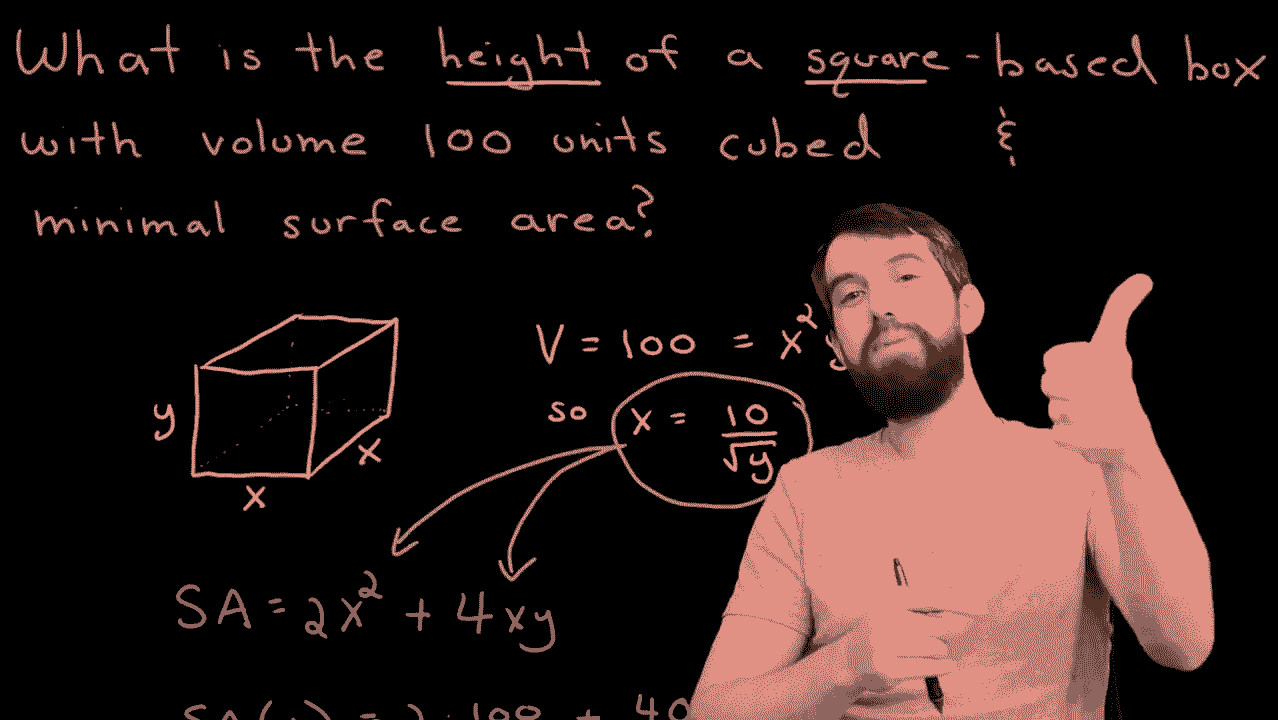 What is the height of a square-based box
with volume 100 units cubed &
minimal surface area?
V = 100 = x²
y
so x = 10/√y
x
x
SA = 2x² + 4xy
SA( ) = 2·100 + 40